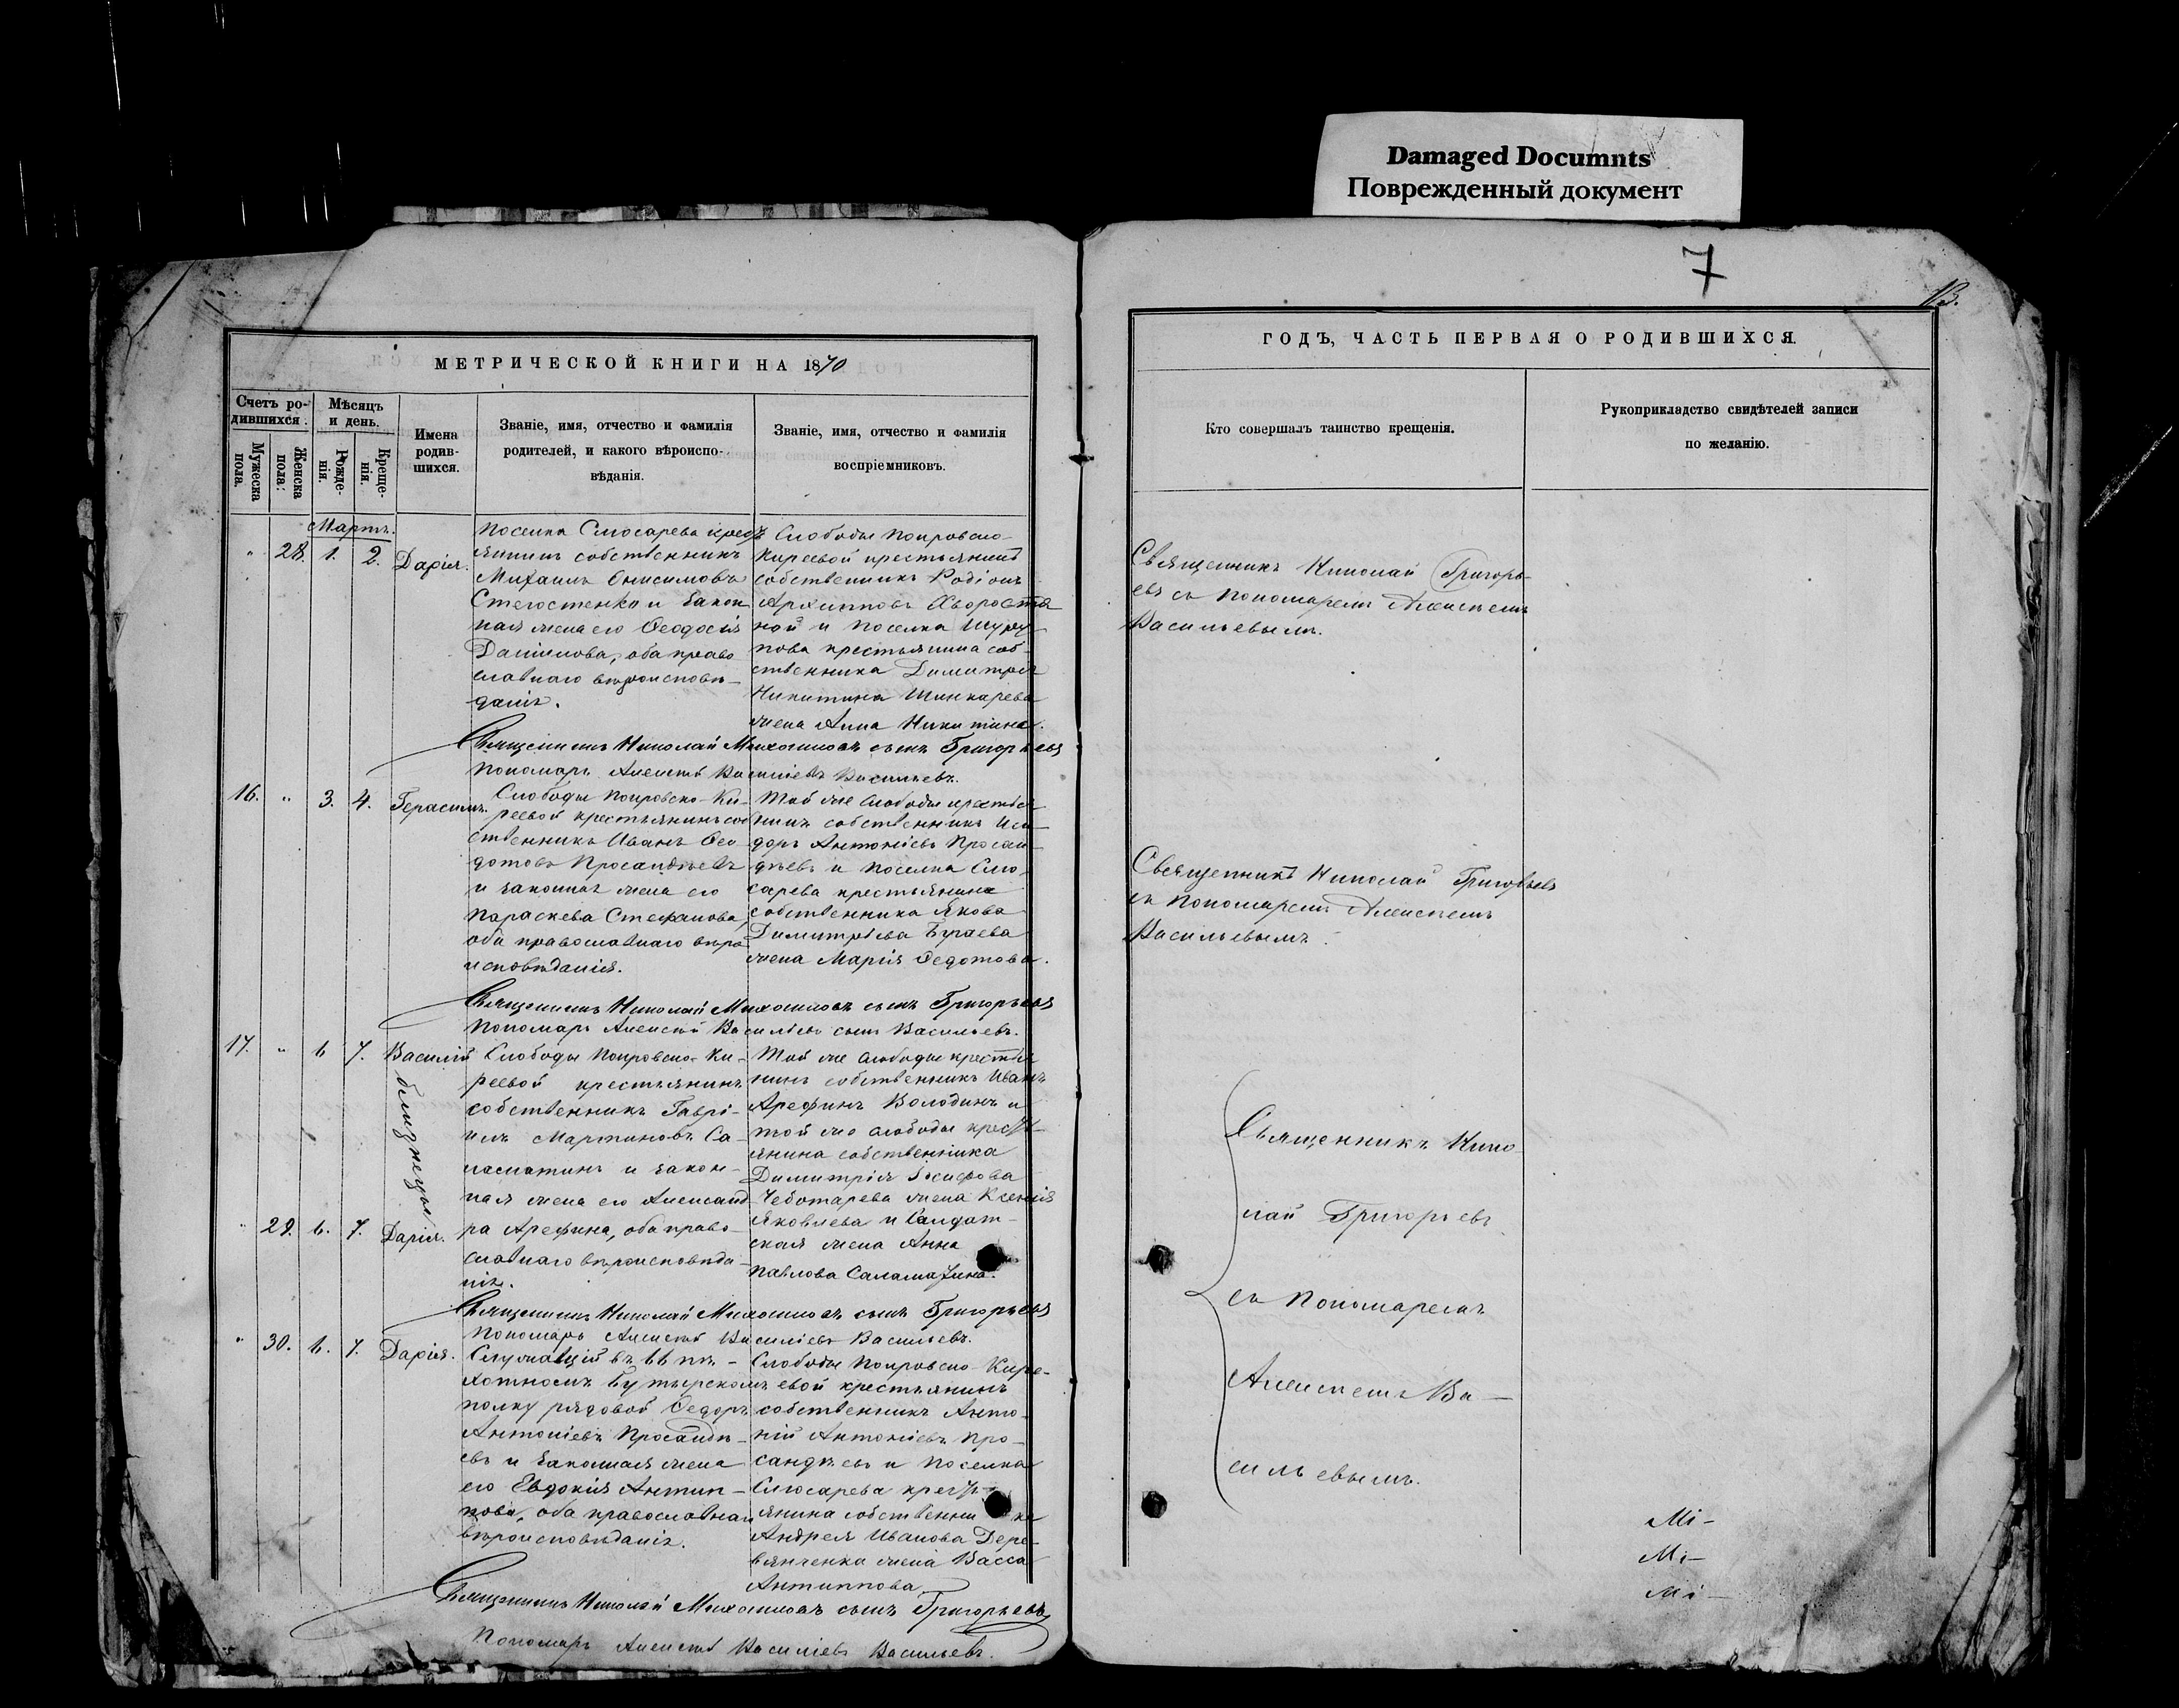 Damaged Documnts
Поврежденный документ
7
13.
МЕТРИЧЕСКОЙ КНИГИ НА 1870
Счетъ ро-
дившихся.
Мужеска пола.
Женска пола.
Мѣсяцъ
и день.
Рожде-
нія.
Креще-
нія.
Имена
родив-
шихся.
Званіе, имя, отчество и фамилія
родителей, и какого вѣроиспо-
вѣданія.
Званіе, имя, отчество и фамилія
воспріемниковъ.
Мартъ.
" 28. 1. 2. Дарія.
Поселка Слюсарева крест
янинъ собственникъ
Михаилъ Онисимовъ
и закон
ная жена его Ѳеодосія
Даниилова, оба право
славнаго вѣроисповѣ-
данія.
Слободы Покровско-
Киреевой крестьянинъ
собственникъ Родіонъ
Архипповъ Хвороста
ной и поселка
крестьянина соб-
ственника Димитрія
Никитина Шинкарева
жена Анна Никитина.
Священникъ Николай Михаиловъ сынъ Григорьевъ
Пономарь Алексѣй Василіевъ Васильевъ.
16. " 3. 4. Герасимъ.
Слободы Покровско-Ки-
реевой крестьянинъ соб
ственникъ Иванъ Ѳео
дотовъ Просандѣевъ
и законная жена его
Параскева Стефанова,
оба православнаго вѣро
исповѣданія.
Той же слободы крестья
нинъ собственникъ Иси-
доръ Антоніевъ Просан-
дѣевъ и поселка Слю-
сарева крестьянина
собственника Якова
Димитріева Бугаева
жена Марія Ѳедотова.
Священникъ Николай Михаиловъ сынъ Григорьевъ
Пономарь Алексѣй Василіевъ сынъ Васильевъ.
17. " 6 7. Василій
близнецы
" 29. 6. 7. Дарія.
Слободы Покровско-Ки-
реевой крестьянинъ
собственникъ Гаврі-
илъ Мартиновъ Са-
ламатинъ и закон-
ная жена его Александ
ра Арефина, оба право-
славнаго вѣроисповѣда-
нія.
Той же слободы крестья
нинъ собственникъ Иванъ
Арефинъ Володинъ и
той же слободы крест
янина собственника
Димитрія Іосифова
Чеботарева жена Ксенія
Яковлева и Салдат-
ская жена Анна
Павлова Саламатина.
Священникъ Николай Михаиловъ сынъ Григорьевъ
Пономарь Алексѣй Василіевъ Васильевъ.
" 30. 6. 7. Дарія.
Служащій въ 66 пѣ-
хотномъ Бутырскомъ
полку рядовой Ѳедоръ
Антоніевъ Просандѣ-
евъ и законная жена
его Евдокія Антип-
пова, оба православнаго
вѣроисповѣданія.
Слободы Покровско-Кире-
евой крестьянинъ
собственникъ Анто-
ній Антоніевъ Про-
сандѣевъ и поселка
Слюсарева крест
янина собственника
Андрея Иванова Дере-
вянченка жена Васса
Антиппова
Священникъ Николай Михаиловъ сынъ Григорьевъ
Пономарь Алексѣй Василіевъ Васильевъ.
ГОДЪ, ЧАСТЬ ПЕРВАЯ О РОДИВШИХСЯ.
Кто совершалъ таинство крещенія.
Рукоприкладство свидѣтелей записи
по желанію.
Священникъ Николай Григорь-
евъ съ пономаремъ Алексѣемъ
Васильевымъ.
Священникъ Николай Григорьевъ
съ пономаремъ Алексѣемъ
Васильевымъ.
Священникъ Нико-
лай Григорьевъ
съ пономаремъ
Алексѣемъ Ва-
сильевымъ.
Мі-
Мі-
Мі-